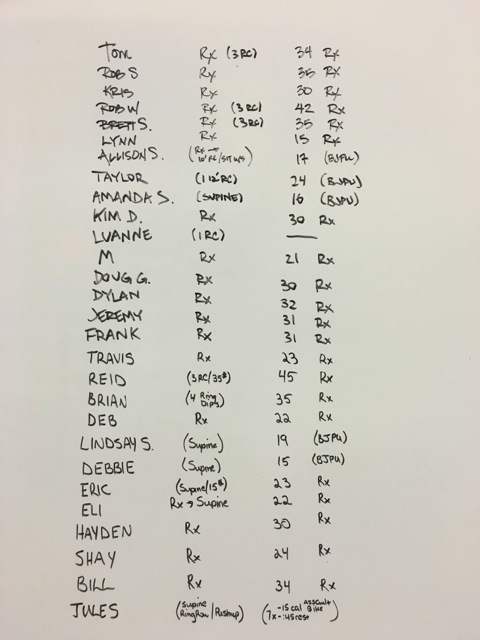 Tom Rx (3RC) 34 Rx
ROB S Rx 35 Rx
KRIS Rx 30 Rx
ROB W Rx (3RC) 42 Rx
BRETT S. Rx (3RC) 35 Rx
LYNN Rx 15 Rx
ALLISON S. (Rx → W/ RC/SIT UPS) 17 (BJPU)
TAYLOR (1 12'RC) 24 (BJPU)
AMANDA S. (SUPINE) 16 (BJPU)
KIM D. Rx 30 Rx
LUANNE (1RC) —
M Rx 21 Rx
DOUG G. Rx 30 Rx
DYLAN Rx 32 Rx
JEREMY Rx 31 Rx
FRANK Rx 31 Rx
TRAVIS Rx 23 Rx
REID (3RC/35#) 45 Rx
BRIAN (4 Ring Dips) 35 Rx
DEB Rx 22 Rx
LINDSAY S. (Supine) 19 (BJPU)
DEBBIE (Supine) 15 (BJPU)
ERIC (Supine/15#) 23 Rx
ELI Rx → Supine 22 Rx
HAYDEN Rx 30 Rx
SHAY Rx 24 Rx
BILL Rx 34 Rx
JULES (Supine Ring Row/Pushup) (7x -15 cal assault Bike -:45 rest)